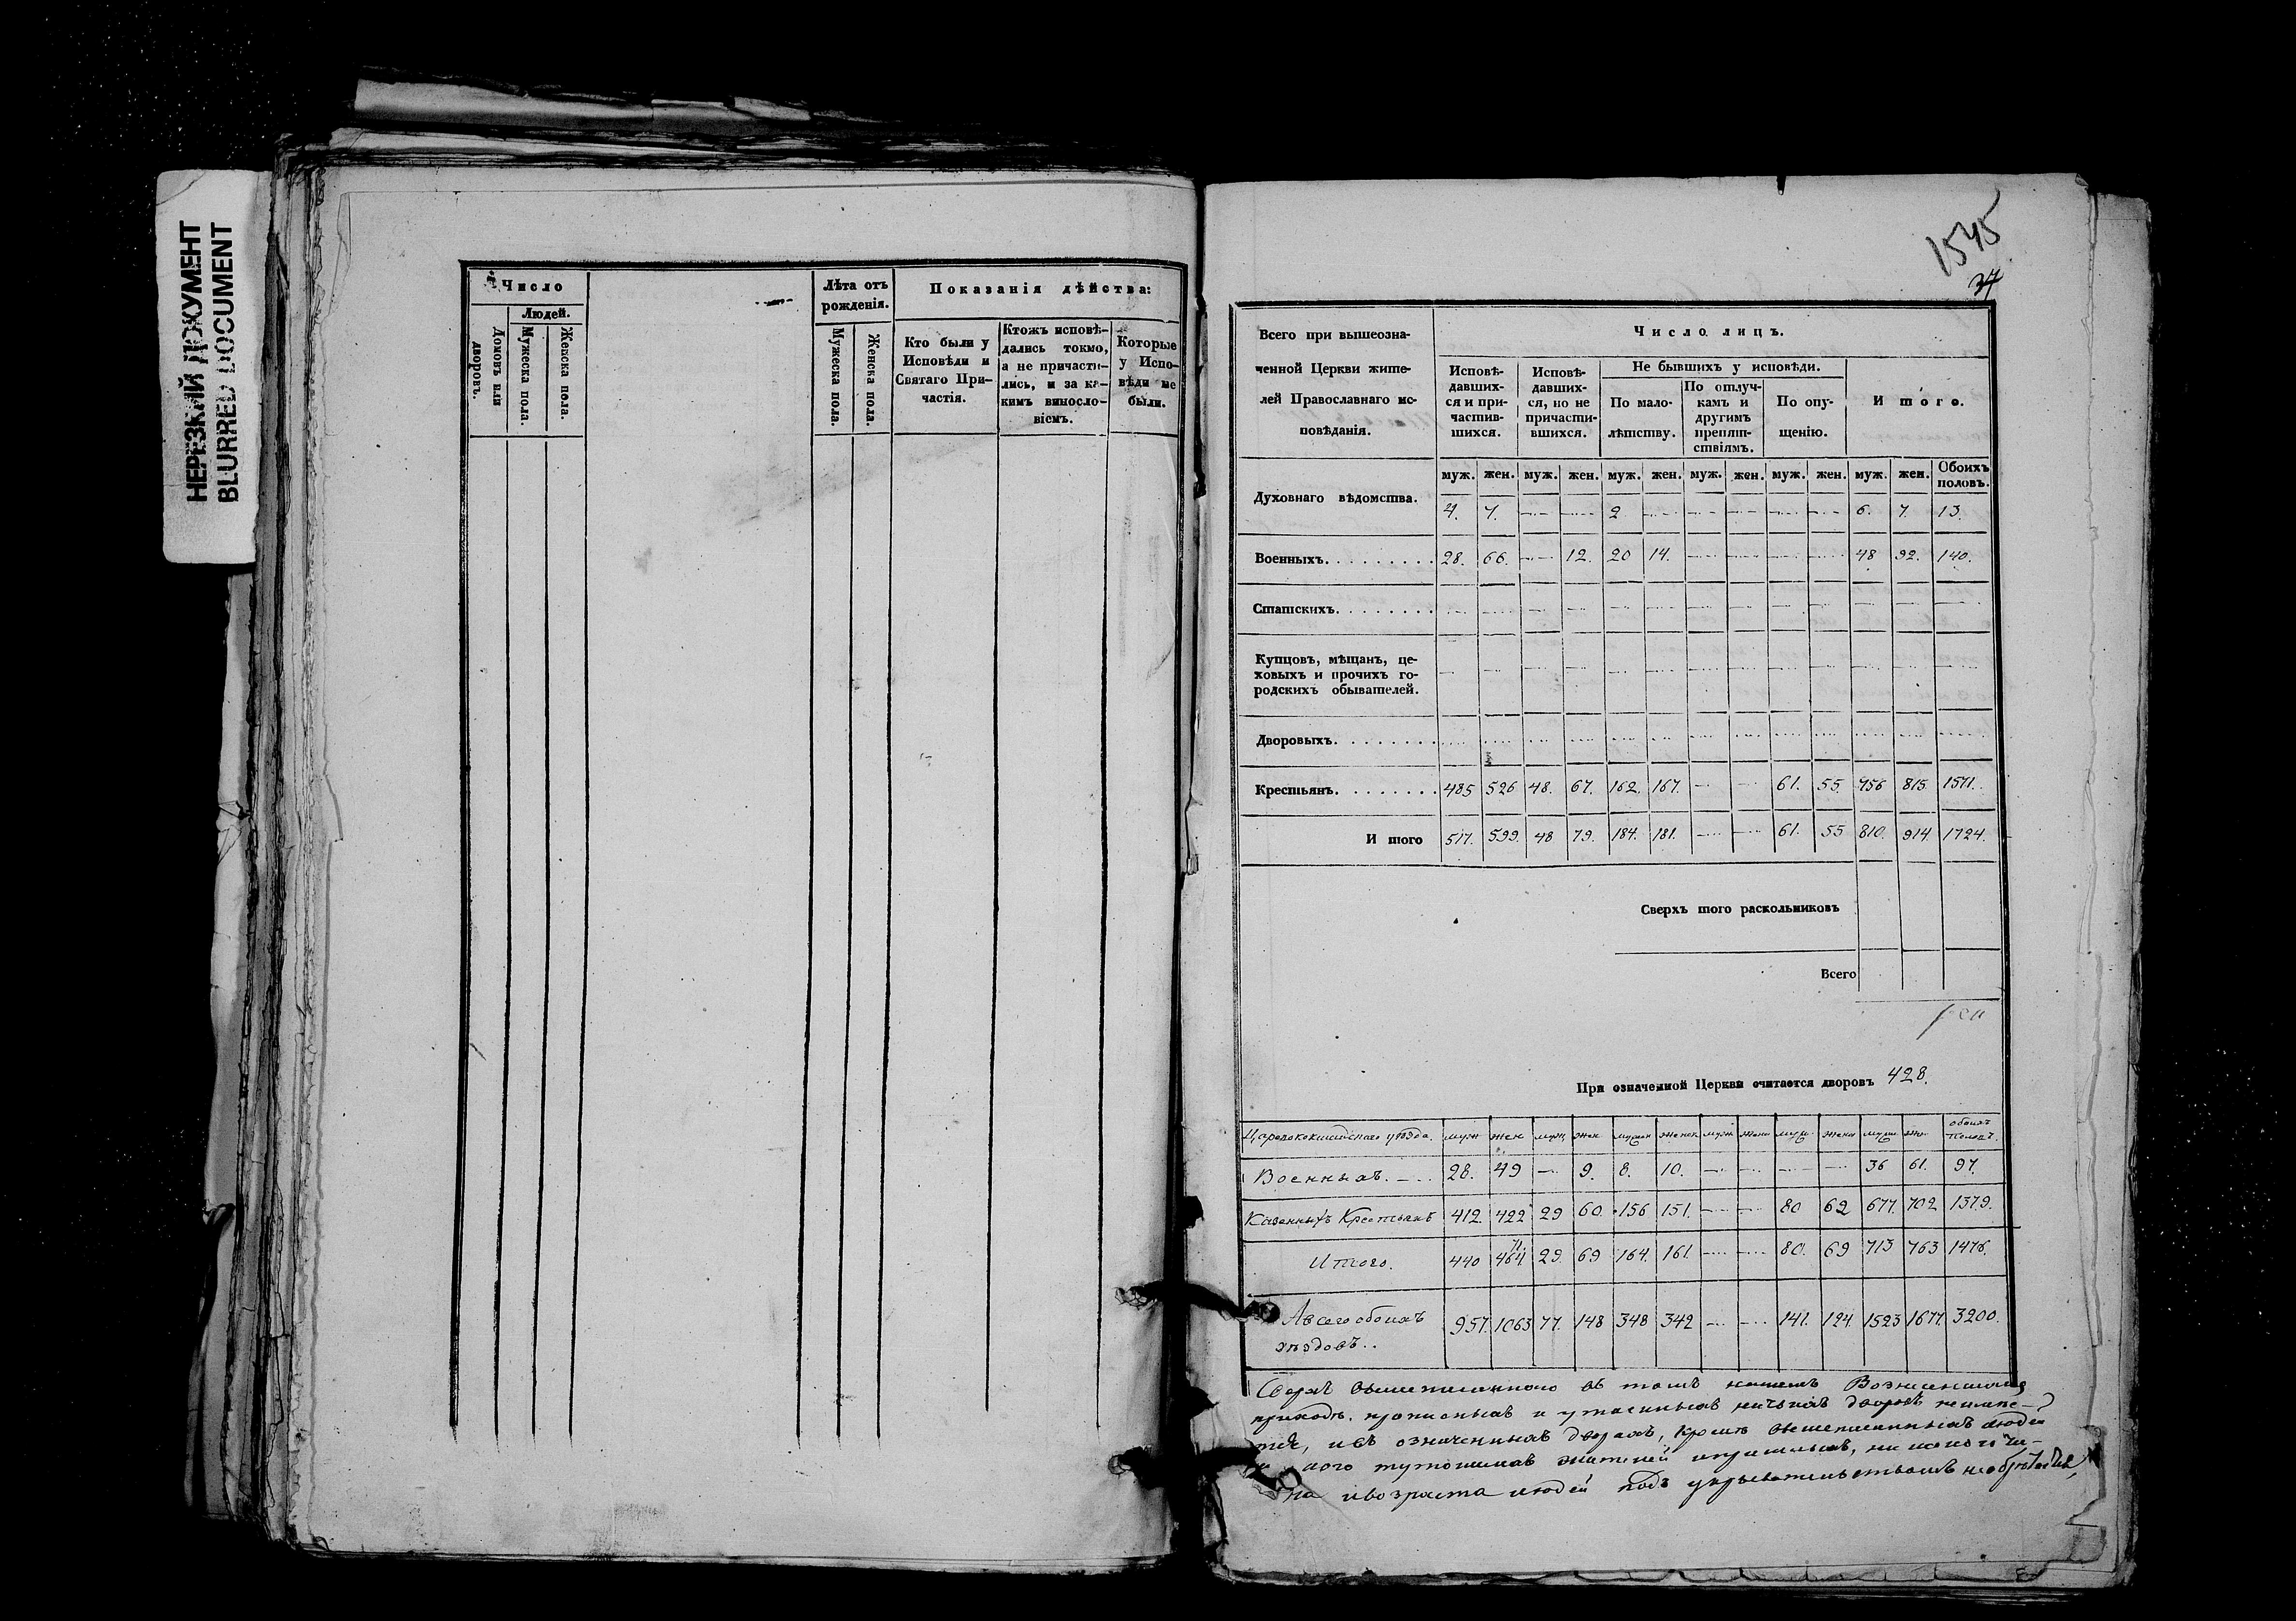 НЕРЕЗКИЙ ДОКУМЕНТ
BLURRED DOCUMENT
Число
Людей.
Домовъ или дворовъ.
Мужеска пола.
Женска пола.
Лѣта отъ
рожденія.
Мужеска пола.
Женска пола.
Показанія дѣйства:
Кто были у
Исповѣди и
Святаго При-
частія.
Ктожъ исповѣ-
дались токмо,
а не причасти-
лись, и за ка-
кимъ винносло-
віемъ.
Которые
у Испо-
вѣди не
были.
1545
37
Всего при вышеозна-
ченной Церкви жите-
лей Православнаго ис-
повѣданія.
Число лицъ.
Исповѣ-
давших-
ся и при-
частив-
шихся.
Исповѣ-
давших-
ся, но не
причасти-
вшихся.
Не бывшихъ у исповѣди.
По мало-
лѣтству.
По отлуч-
камъ и
другимъ
препят-
ствіямъ.
По опу-
щенію.
И того.
муж. жен. муж. жен. муж. жен. муж. жен. муж. жен. муж. жен. Обоихъ половъ.
Духовнаго вѣдомства. 4. 7. — — 2 — — — — — 6. 7. 13.
Военныхъ. 28. 66. — 12. 20 14. — — — — 48 92. 140.
Статскихъ.
Купцовъ, мѣщанъ, це-
ховыхъ и прочихъ го-
родскихъ обывателей.
Дворовыхъ.
Крестьянъ. 485 526 48. 67. 162. 167. — — 61. 55. 956 815. 1571.
И того 517. 599. 48 79. 184. 181. — — 61. 55 810. 914. 1724.
Сверхъ того раскольниковъ
Всего
При означенной Церкви считается дворовъ 428.
Царевококшайскаго уѣзда. муж жен муж жен мужск женск муж жен муж жен муж жен обоихъ половъ.
Военныхъ. 28. 49 — 9. 8. 10. — — — — 36 61. 97.
Казенныхъ Крестьянъ 412. 422 29 60. 156 151. — — 80 69 677. 702 1379.
Итого. 440 471 29. 69 164. 161. — — 80. 69 713 763 1476.
А всего обоихъ
уѣздовъ.. 957. 1063 77. 148 348 342 — — 141. 124. 1523 1677. 3200.
Сверхъ вышеписаннаго въ томъ нашемъ
приходѣ, прописныхъ и утаенныхъ дворовъ неимѣе-
тся, и въ означенныхъ дворахъ, кромѣ вышеписанныхъ людей
жителей и пришлыхъ, ни какого чи-
на и возраста людей подъ укрывательствомъ